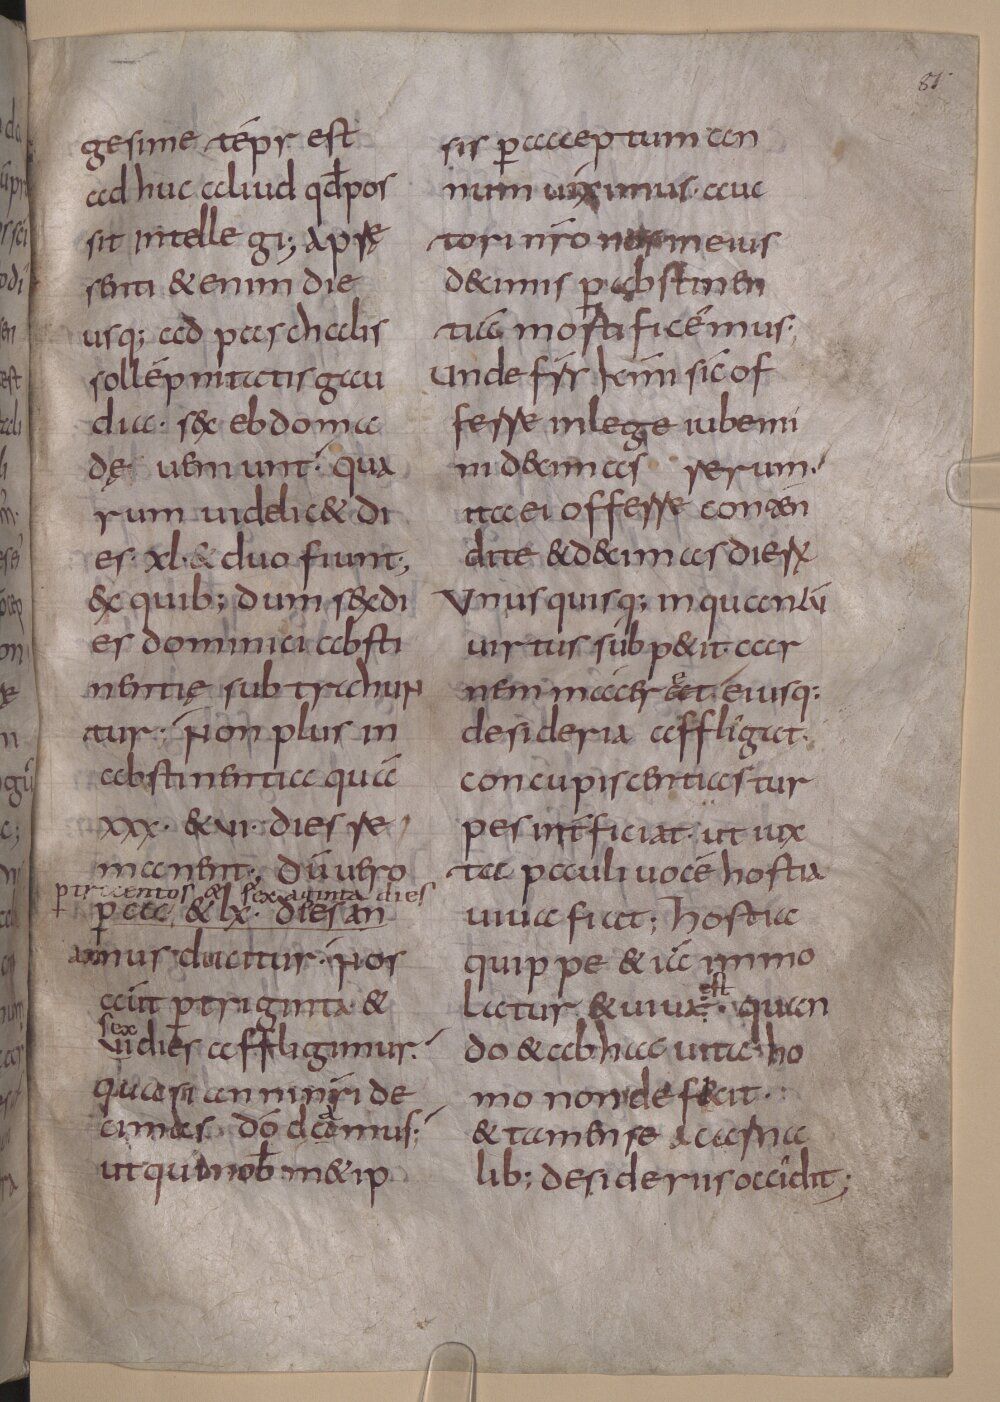 81
gesime tēpr est
ad huc aliud qđ pos
sit intelle gi; apræ
senti & enim die
usq; ad paschalis
sollēpnitatis gau
dia. sex ebdoma
dę ueniunt. qua
rum uidelic& di
es. xl. & duo fiunt;
&x quib; dum s&x di
es dominici absti
nentię subtrahun
tur. Non plus in
abstinentia quā
xxx. & ui. dies re
manent; Dū uero
p trecentos & sexaginta dies
p ccc & lx. dies an
annus ducitur. Nos
autē p triginta &
sex
ui dies affligimur.
quasi anni nr̄i de
cimas dō damus;
ut qui nob m& ip
sis p acceptum an
num uiximus. auc
tori nr̄o nos in eius
decimis p abstinen
tiā mortificēmus;
Unde fr̄r k̄mi sic of
ferre in lege iubemi
ni decimas rerum.
ita ei offerre conten
dite & decimas dierū
Unusquisq; in quantū
uirtus subpetit car
nem macer&. eiusq;
desideria affligat.
concupiscentias tur
pes int̄ficiat. ut iux
ta pauli uocē hostia
uiua fiat; Hostia
quippe & iā immo
est
latur. & uiua. quan
do & ab hac uita ho
mo non deficit.
& tamen se a carna
lib; desideriis occidit;